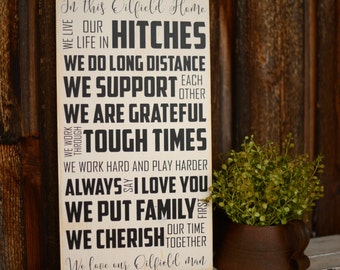 In this Oilfield Home
WE LIVE OUR LIFE IN HITCHES
WE DO LONG DISTANCE
WE SUPPORT EACH OTHER
WE ARE GRATEFUL
WE WORK THROUGH TOUGH TIMES
WE WORK HARD AND PLAY HARDER
ALWAYS SAY I LOVE YOU
WE PUT FAMILY FIRST
WE CHERISH OUR TIME TOGETHER
We love our Oilfield man